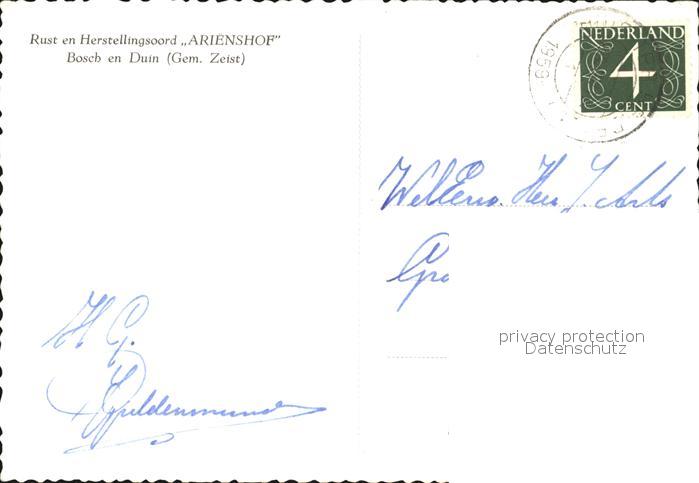 Rust en Herstellingsoord „ARIËNSHOF”
Bosch en Duin (Gem. Zeist)
NEDERLAND
4
CENT
1958
WelEerw. Heer J. Arts
privacy protection
Datenschutz
H G.
Guldenmund